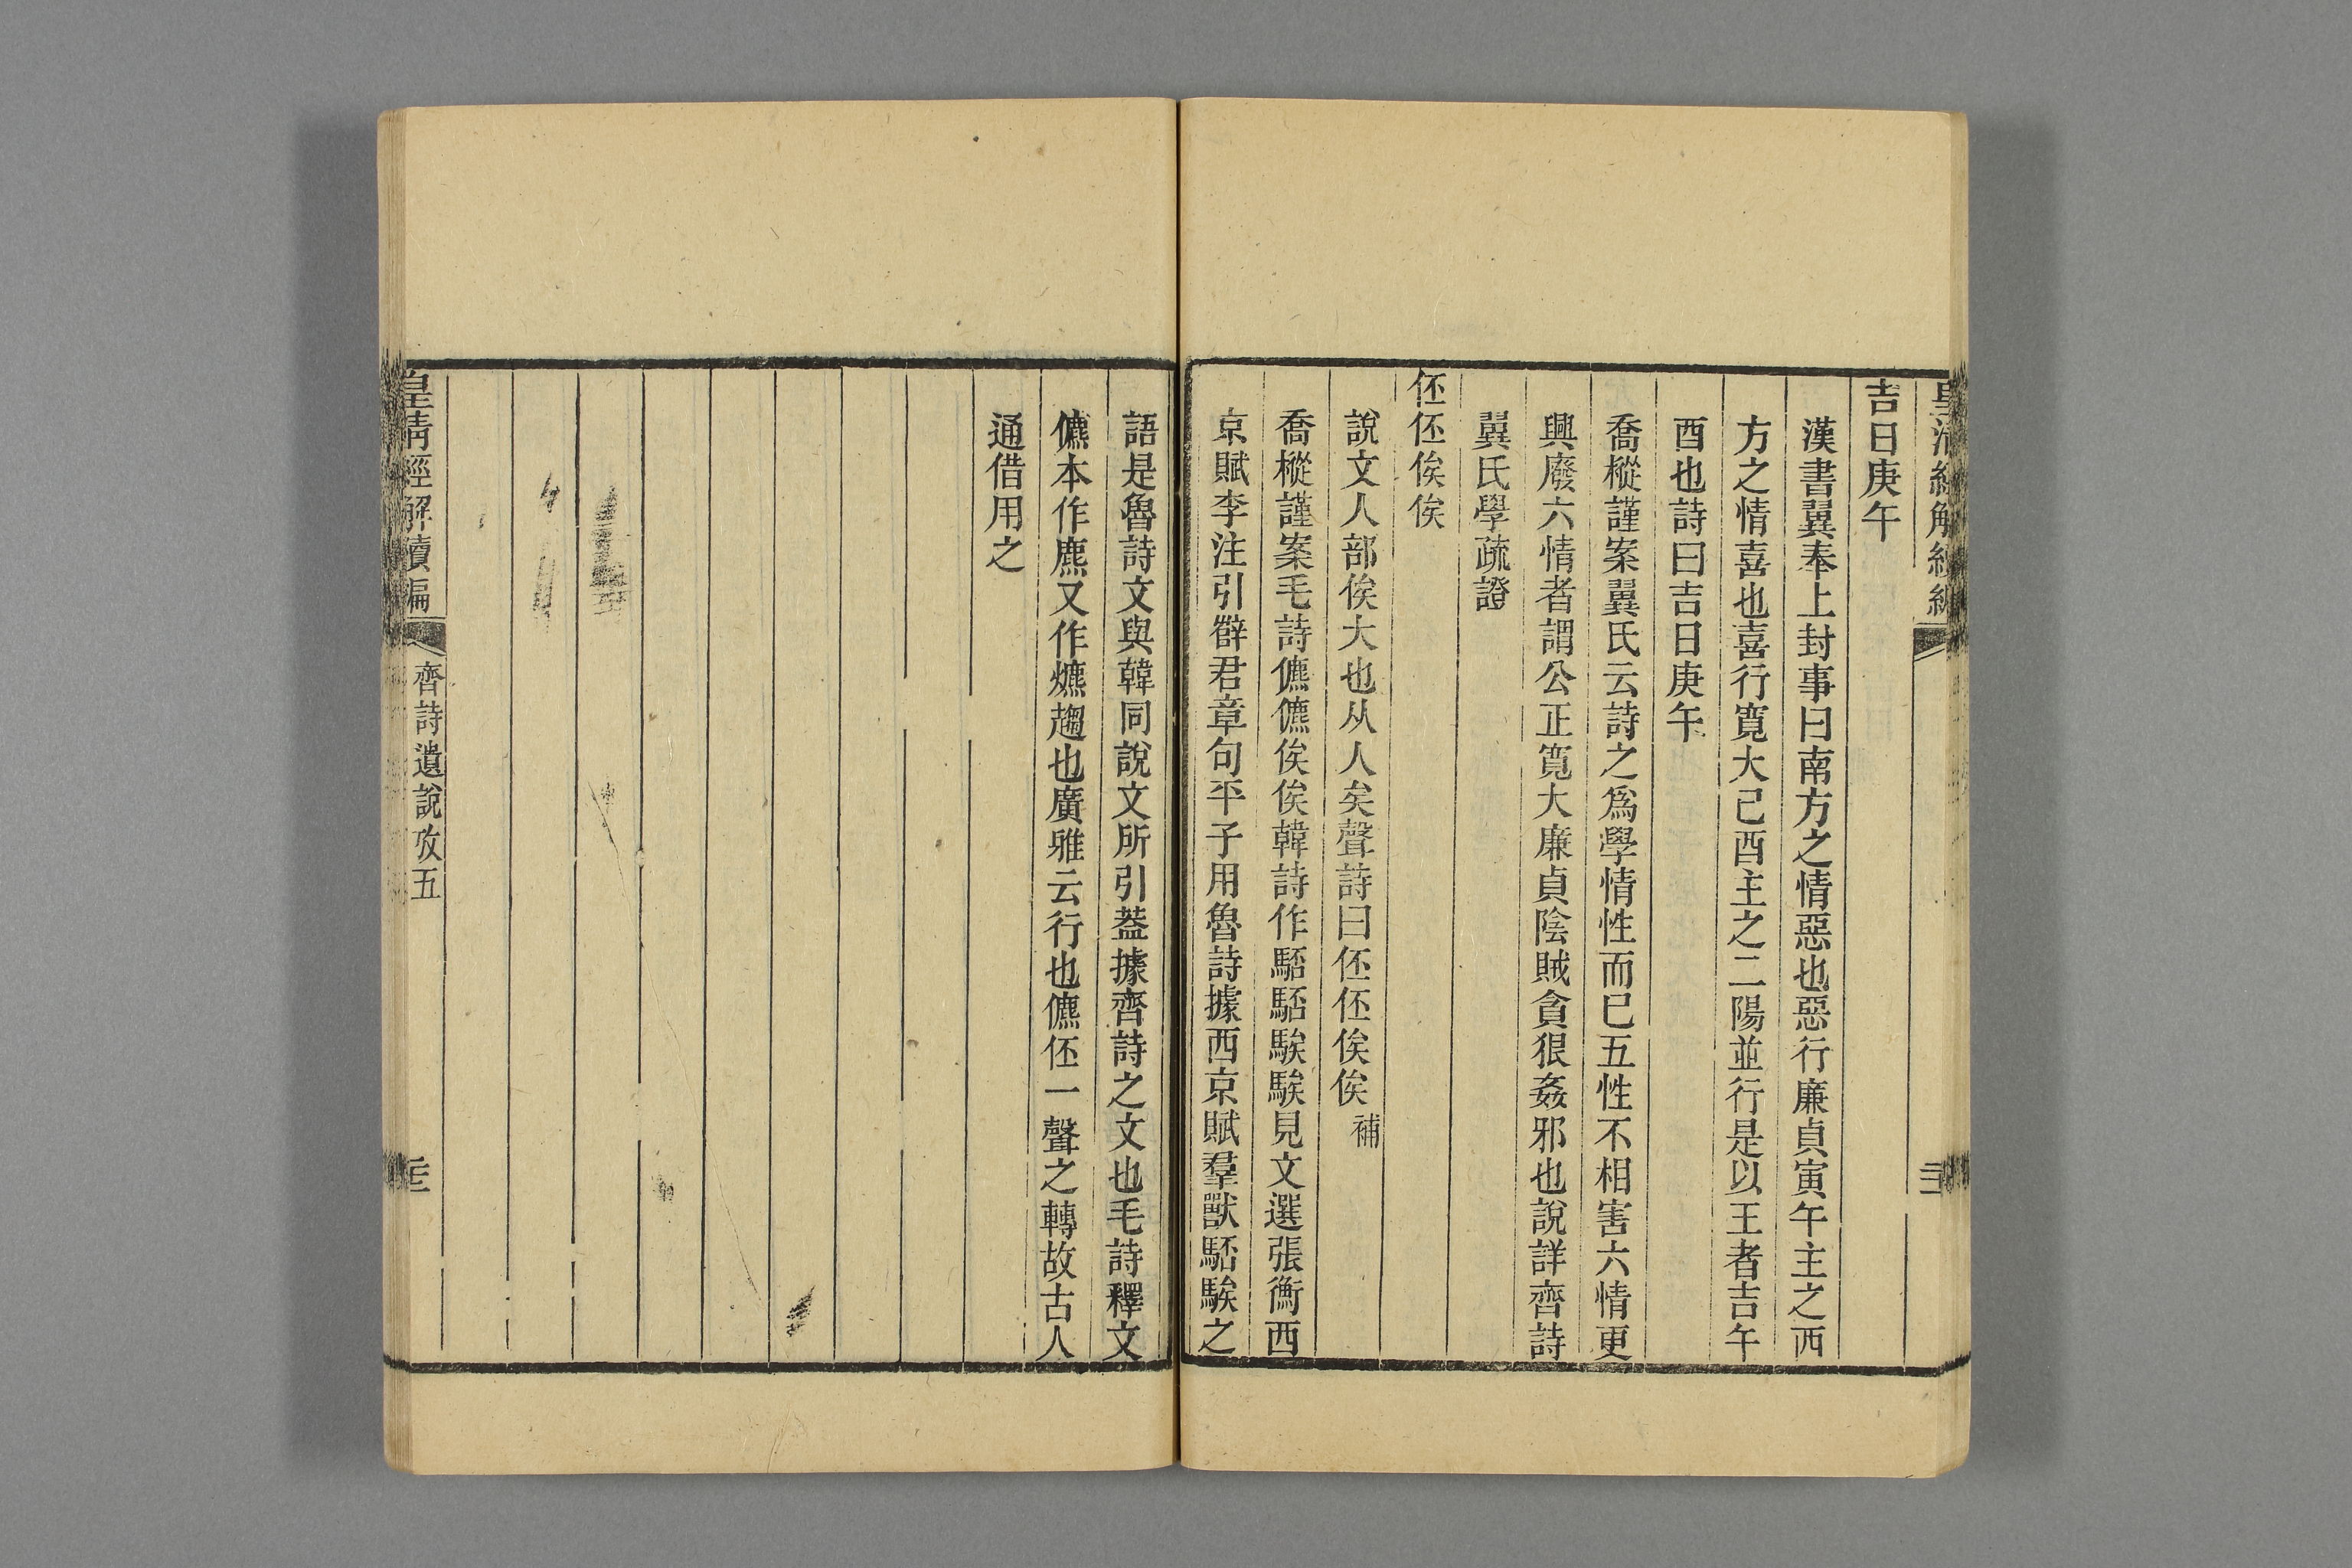 吉日庚午
漢書翼奉上封事曰南方之情惡也惡行廉貞寅午主之西
方之情喜也喜行寬大己酉主之二陽並行是以王者吉午
酉也詩曰吉日庚午
喬樅謹案翼氏云詩之爲學情性而已五性不相害六情更
興廢六情者謂公正寬大廉貞陰賊貪狠姦邪也說詳齊詩
翼氏學疏證
伾伾俟俟
說文人部俟大也从人矣聲詩曰伾伾俟俟補
喬樅謹案毛詩儦儦俟俟韓詩作駓駓騃騃見文選張衡西
京賦李注引薛君章句平子用魯詩據西京賦羣獸駓騃之
語是魯詩文與韓同說文所引葢據齊詩之文也毛詩釋文
儦本作麃又作爊趨也廣雅云行也儦伾一聲之轉故古人
通借用之
皇清經解續編
齊詩遺說攷五